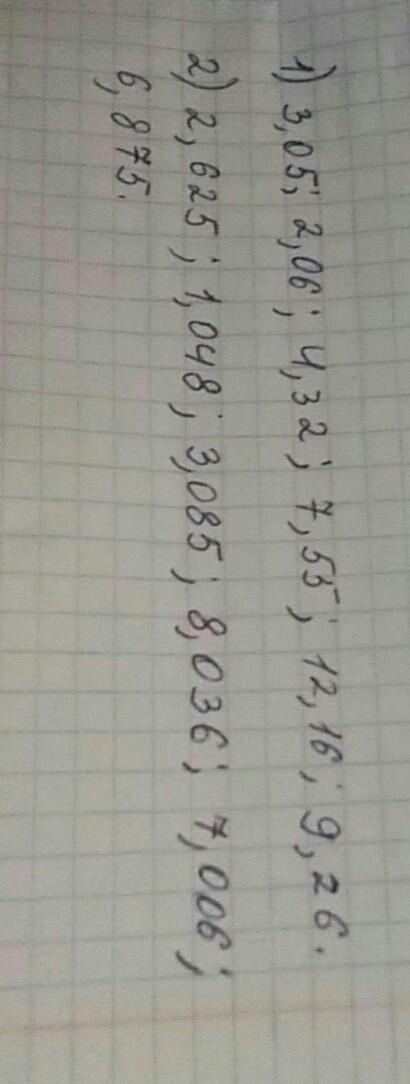 1) 3,05; 2,06; 4,32; 7,55; 12,16; 9,26.
2) 2,625; 1,048; 3,085; 8,036; 7,006;
6,875.